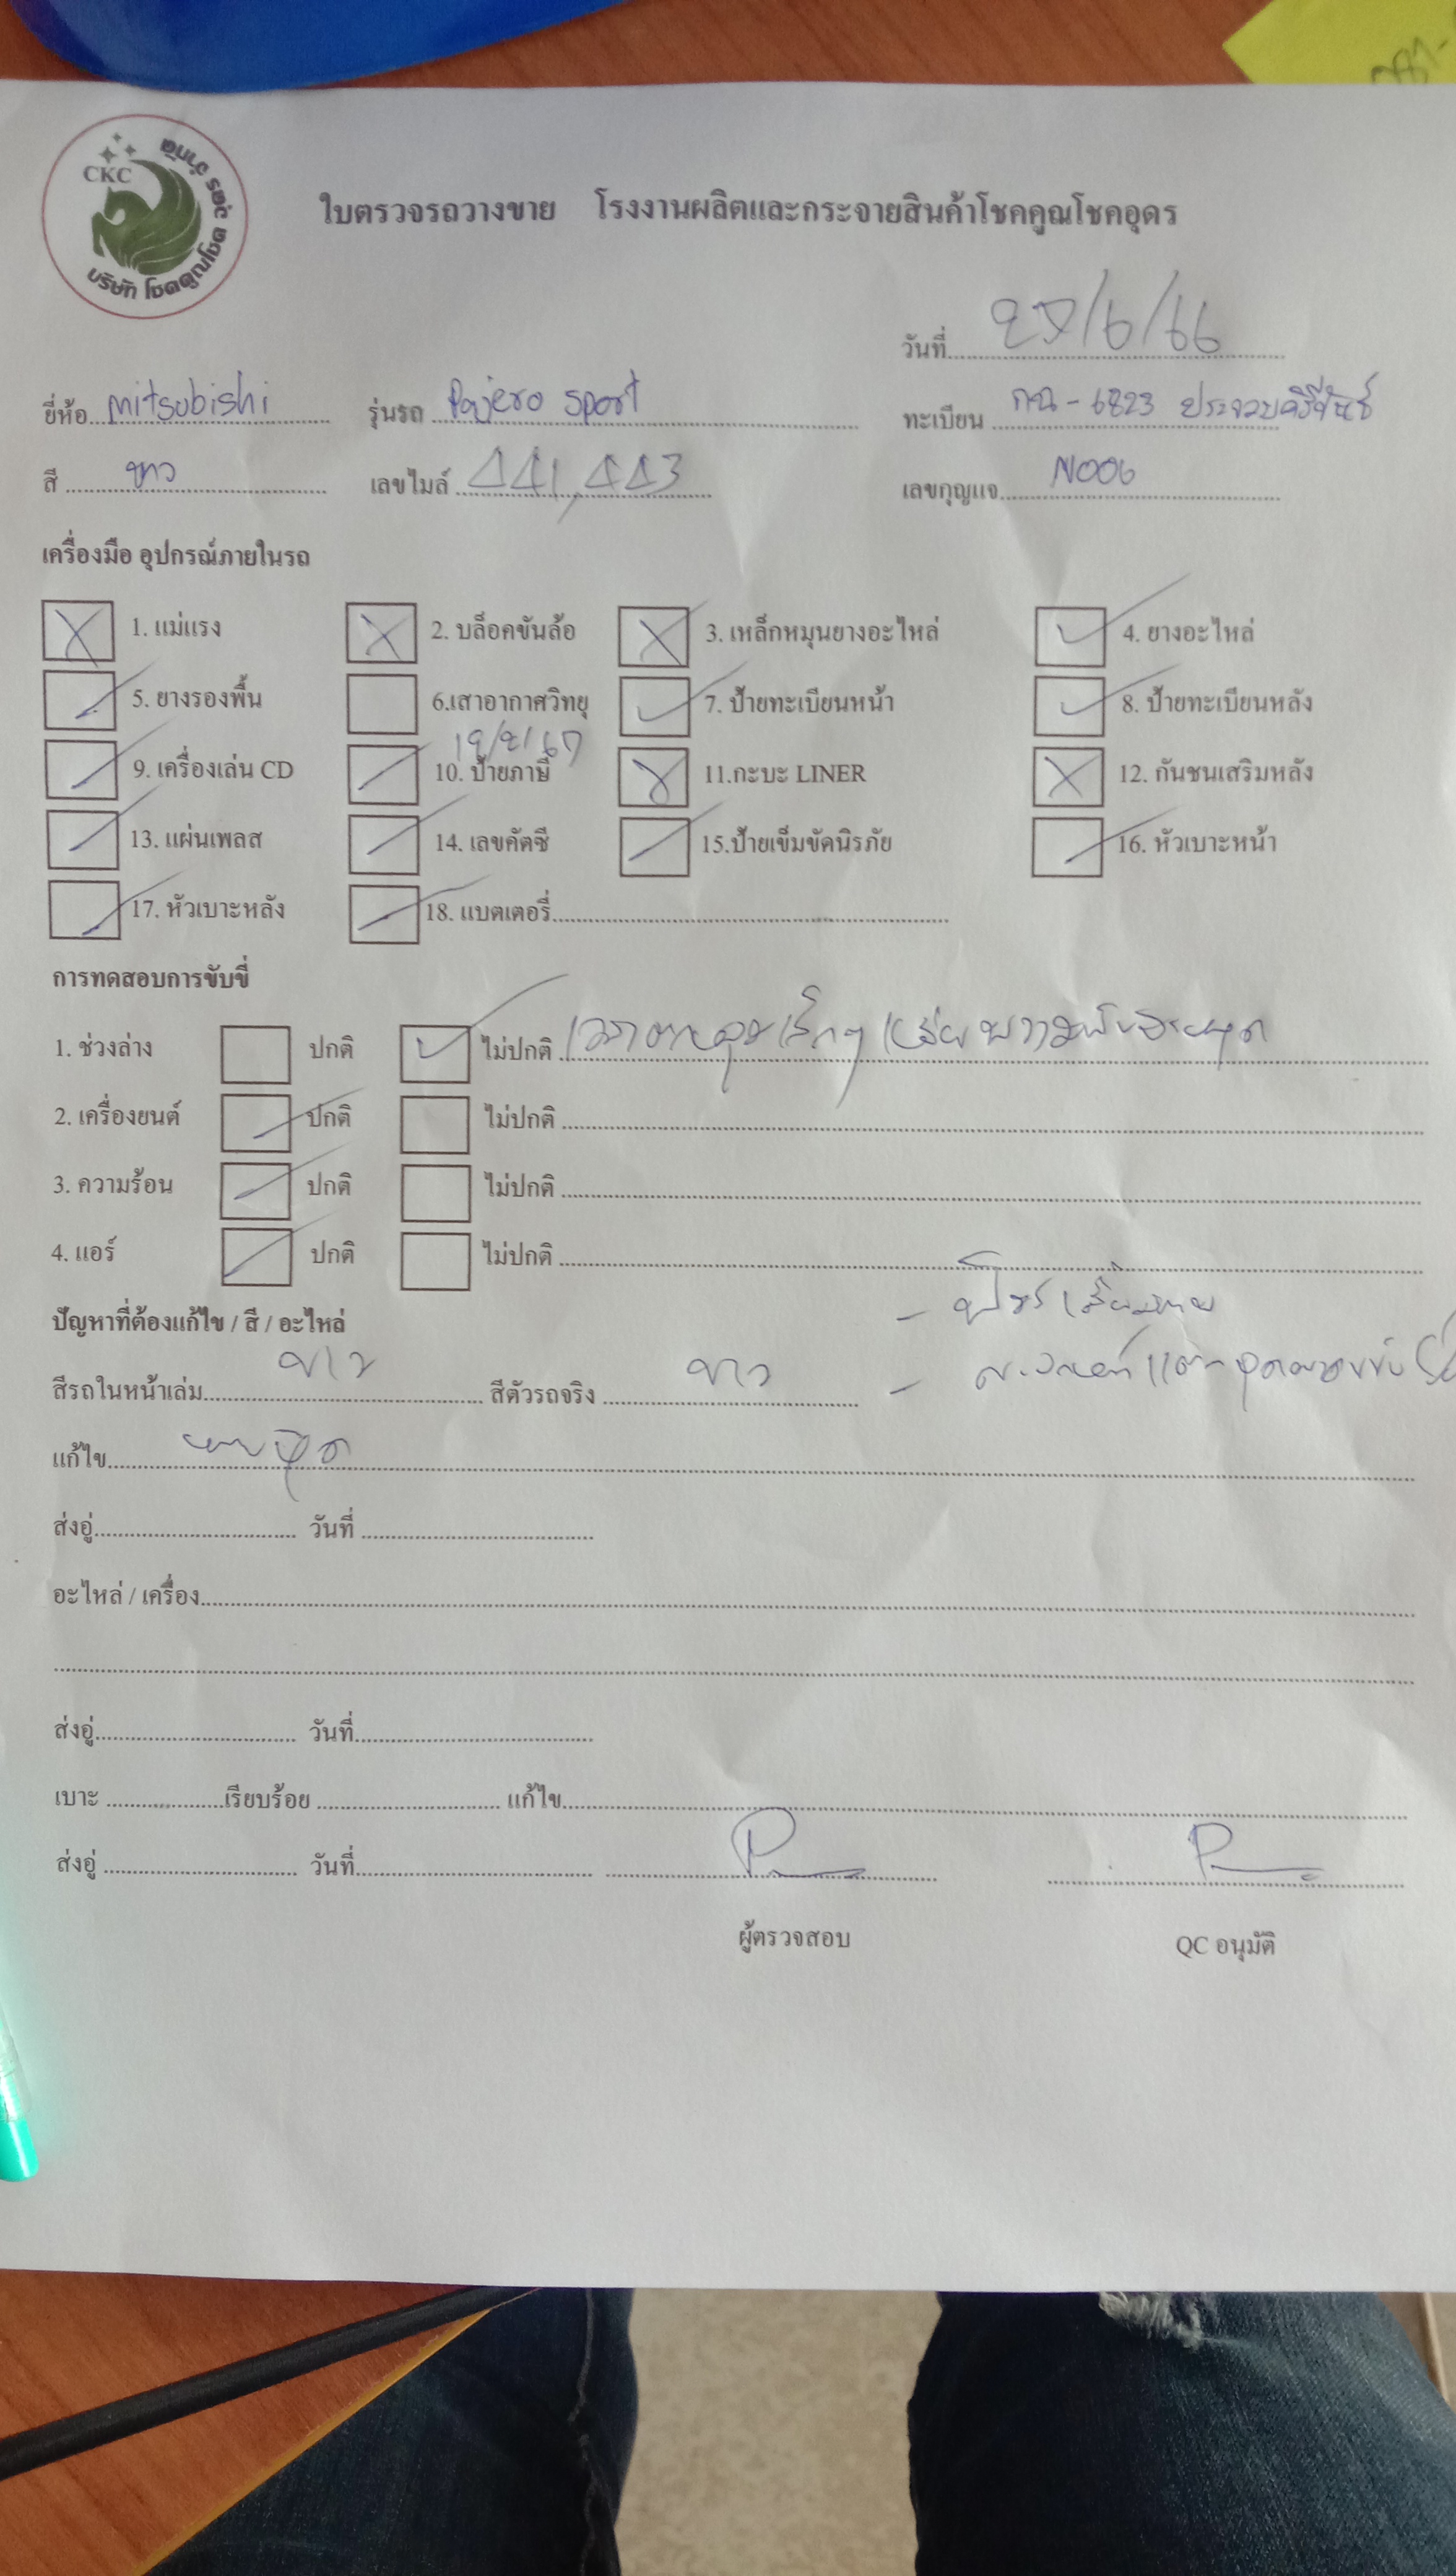 CKC
บริษัท โชคคูณโชค อุดร จำกัด
ใบตรวจรถวางขาย โรงงานผลิตและกระจายสินค้าโชคคูณโชคอุดร
วันที่ /6/66
ยี่ห้อ mitsubishi รุ่นรถ Pajero sport ทะเบียน กฉ - 6823 ประจวบคีรีขันธ์
สี ขาว เลขไมล์ 441,443 เลขกุญแจ N006
เครื่องมือ อุปกรณ์ภายในรถ
1. แม่แรง 2. บล็อคขันล้อ 3. เหล็กหมุนยางอะไหล่ 4. ยางอะไหล่
5. ยางรองพื้น 6.เสาอากาศวิทยุ 7. ป้ายทะเบียนหน้า 8. ป้ายทะเบียนหลัง
9. เครื่องเล่น CD 10. ป้ายภาษี 11.กะบะ LINER 12. กันชนเสริมหลัง
13. แผ่นเพลส 14. เลขคัตซี 15.ป้ายเข็มขัดนิรภัย 16. หัวเบาะหน้า
17. หัวเบาะหลัง 18. แบตเตอรี่
การทดสอบการขับขี่
1. ช่วงล่าง ปกติ ไม่ปกติ
2. เครื่องยนต์ ปกติ ไม่ปกติ
3. ความร้อน ปกติ ไม่ปกติ
4. แอร์ ปกติ ไม่ปกติ
ปัญหาที่ต้องแก้ไข / สี / อะไหล่
สีรถในหน้าเล่ม ขาว สีตัวรถจริง ขาว
แก้ไข
ส่งอู่ วันที่
อะไหล่ / เครื่อง
ส่งอู่ วันที่
เบาะ เรียบร้อย แก้ไข
ส่งอู่ วันที่
ผู้ตรวจสอบ QC อนุมัติ